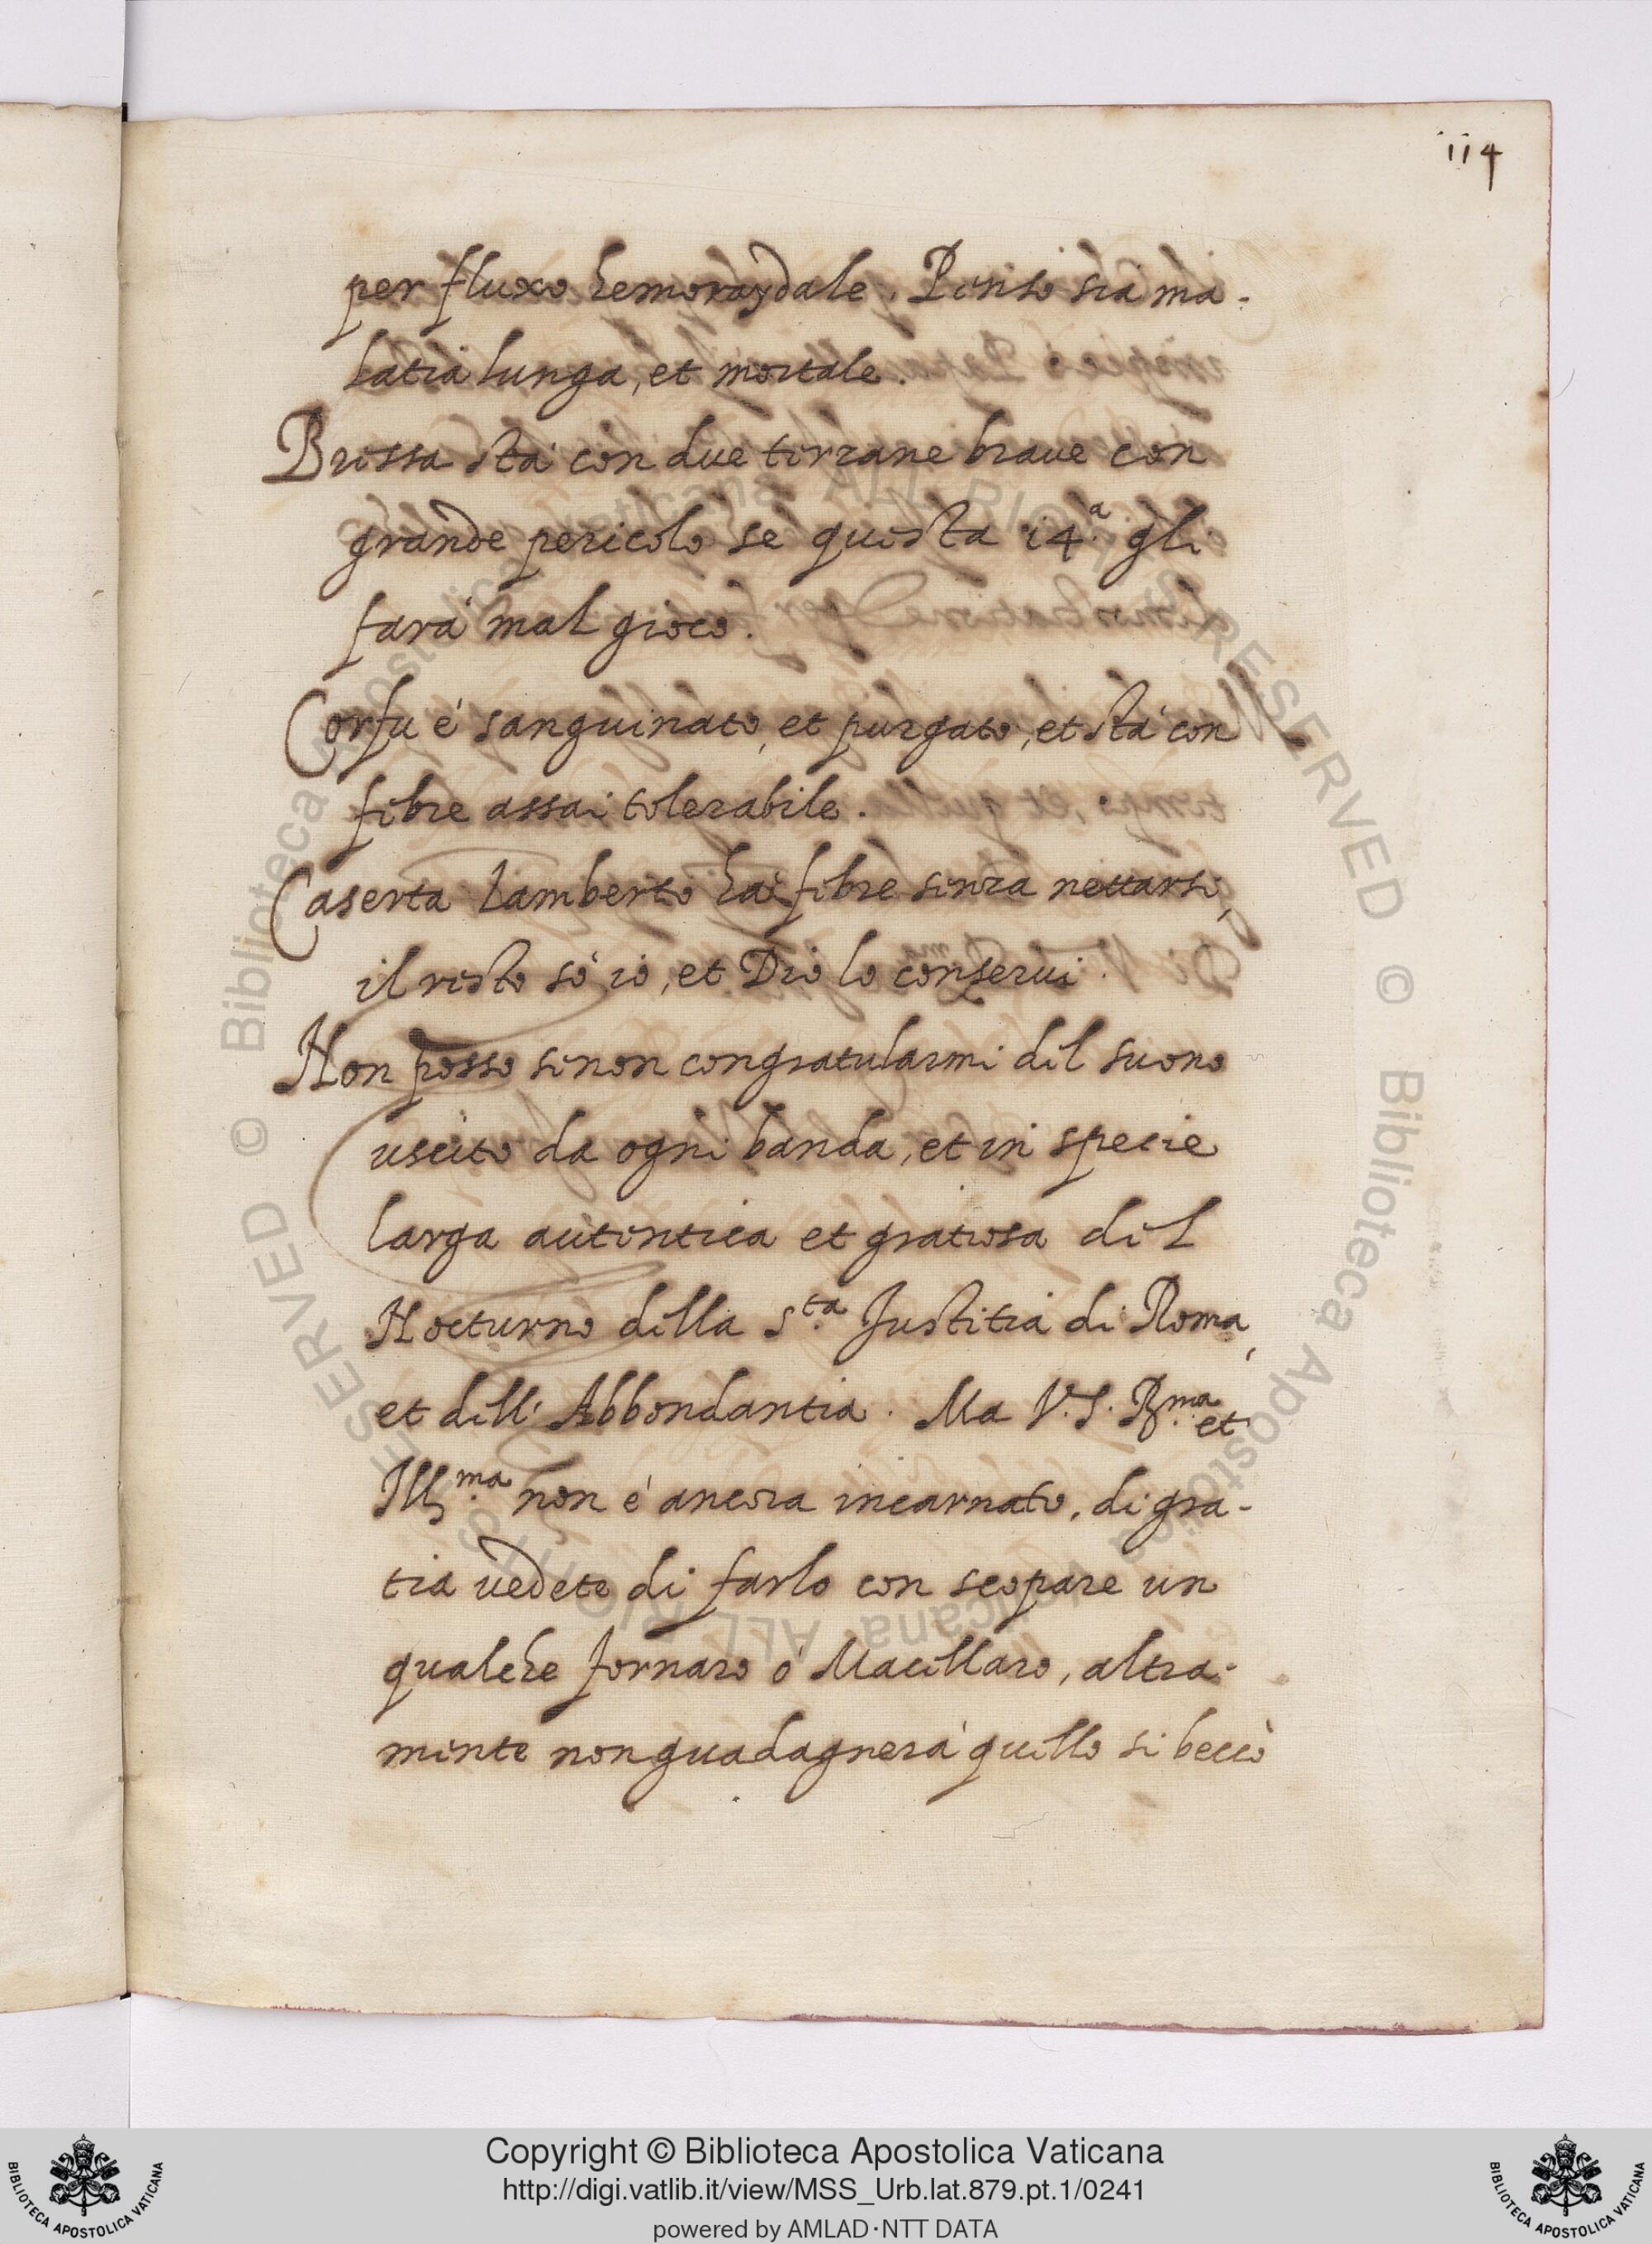 114
per fluxo hemoraydale. Penso sia ma-
latia lunga, et mortale.
Brissa stà con due terzane braue con
grande pericolo se questa 14.ª gli
farà mal gioco.
Corfu è sanguinato, et purgato, et stà con
febre assai tolerabile.
Caserta Lamberto hà febre senza nettarsi,
il resto sò io, et Dio lo conserui.
Non posso senon congratularmi del suono
uscito da ogni banda, et in specie
larga autentica et gratiosa del
Nocturno della S.ta Justitia di Roma,
et dell'Abbondantia. Ma V.S. R.ma et
Ill.ma non è ancora incarnato, di gra-
tia vedete di farlo con scopare un
qualche fornaro ò Macellaro, altra-
mente non guadagnerà quello si beccò
Copyright © Biblioteca Apostolica Vaticana
http://digi.vatlib.it/view/MSS_Urb.lat.879.pt.1/0241
powered by AMLAD·NTT DATA
BIBLIOTECA APOSTOLICA VATICANA
BIBLIOTECA APOSTOLICA VATICANA
© Biblioteca Apostolica Vaticana ALL RIGHTS RESERVED
© Biblioteca Apostolica Vaticana ALL RIGHTS RESERVED